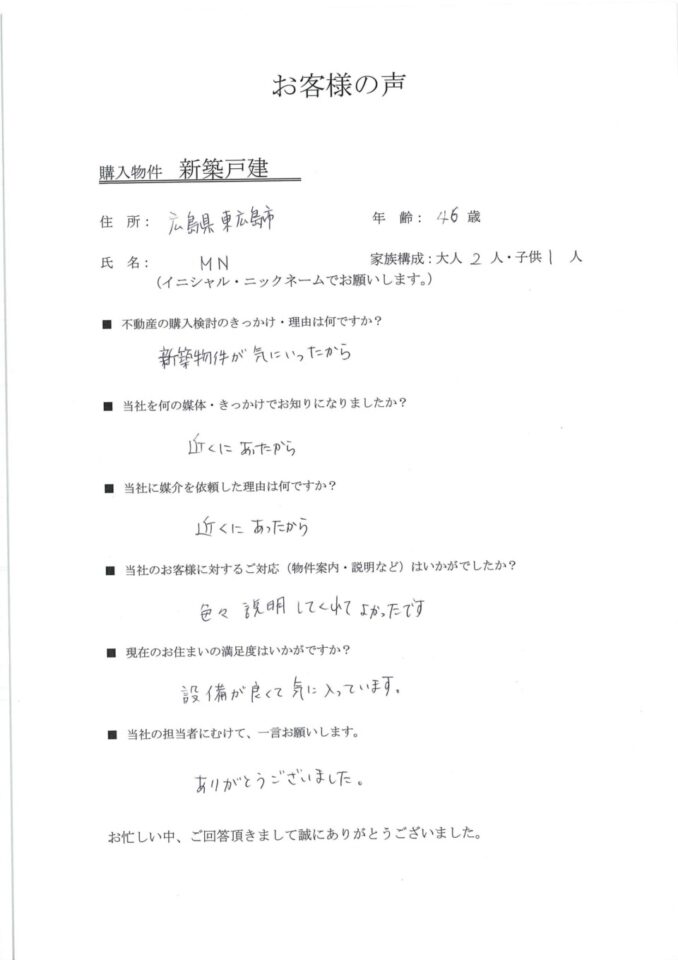 お客様の声
購入物件 新築戸建
住 所： 広島県東広島市 年 齢： 46 歳
氏 名： MN 家族構成：大人 2 人・子供 1 人
（イニシャル・ニックネームでお願いします。）
■ 不動産の購入検討のきっかけ・理由は何ですか？
新築物件が気にいったから
■ 当社を何の媒体・きっかけでお知りになりましたか？
近くにあったから
■ 当社に媒介を依頼した理由は何ですか？
近くにあったから
■ 当社のお客様に対するご対応（物件案内・説明など）はいかがでしたか？
色々説明してくれてよかったです
■ 現在のお住まいの満足度はいかがですか？
設備が良くて気に入っています。
■ 当社の担当者にむけて、一言お願いします。
ありがとうございました。
お忙しい中、ご回答頂きまして誠にありがとうございました。